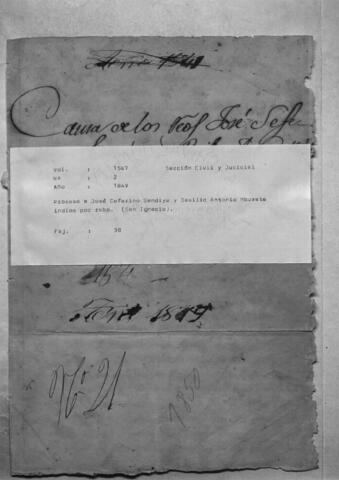 Causa de los Reos José Sefe
Vol. : 1547 Sección Civil y Judicial
Nº : 2
Año : 1849
Proceso a José Ceferino Bendiya y Basilio Antonio Mbureta
indios por robo. (San Ignacio).
Foj. : 38
1849
Nº 21
1850